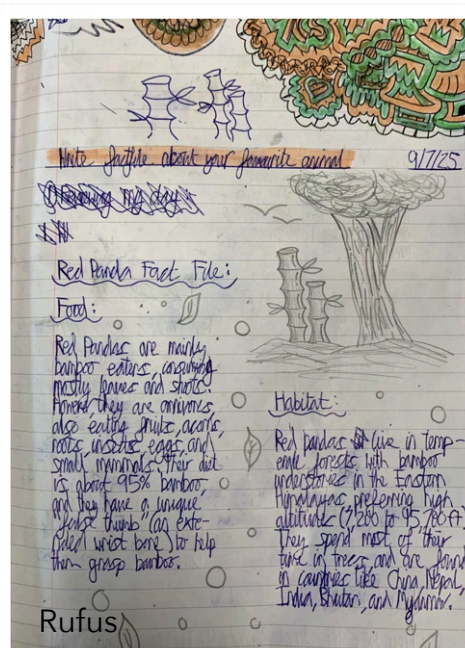 Write factfile about your favourite animal
9/7/25
Red Panda Fact File:
Food:
Red Pandas are mainly
bamboo eaters, consuming
mostly leaves and shoots.
However they are omnivores,
also eating fruits, acorns,
roots, insects, eggs, and
small mammals. Their diet
is about 95% bamboo,
and they have a unique
"false thumb" (an exte-
nded wrist bone) to help
them grasp bamboo.
Habitat:
Red pandas live in temp-
erate forests with bamboo
understories in the Eastern
Himalayas, preferring high
altitudes (7,200 to 15,700 ft)
They spend most of their
time in trees, and are found
in countries like China, Nepal,
India, Bhutan, and Myanmar.
Rufus